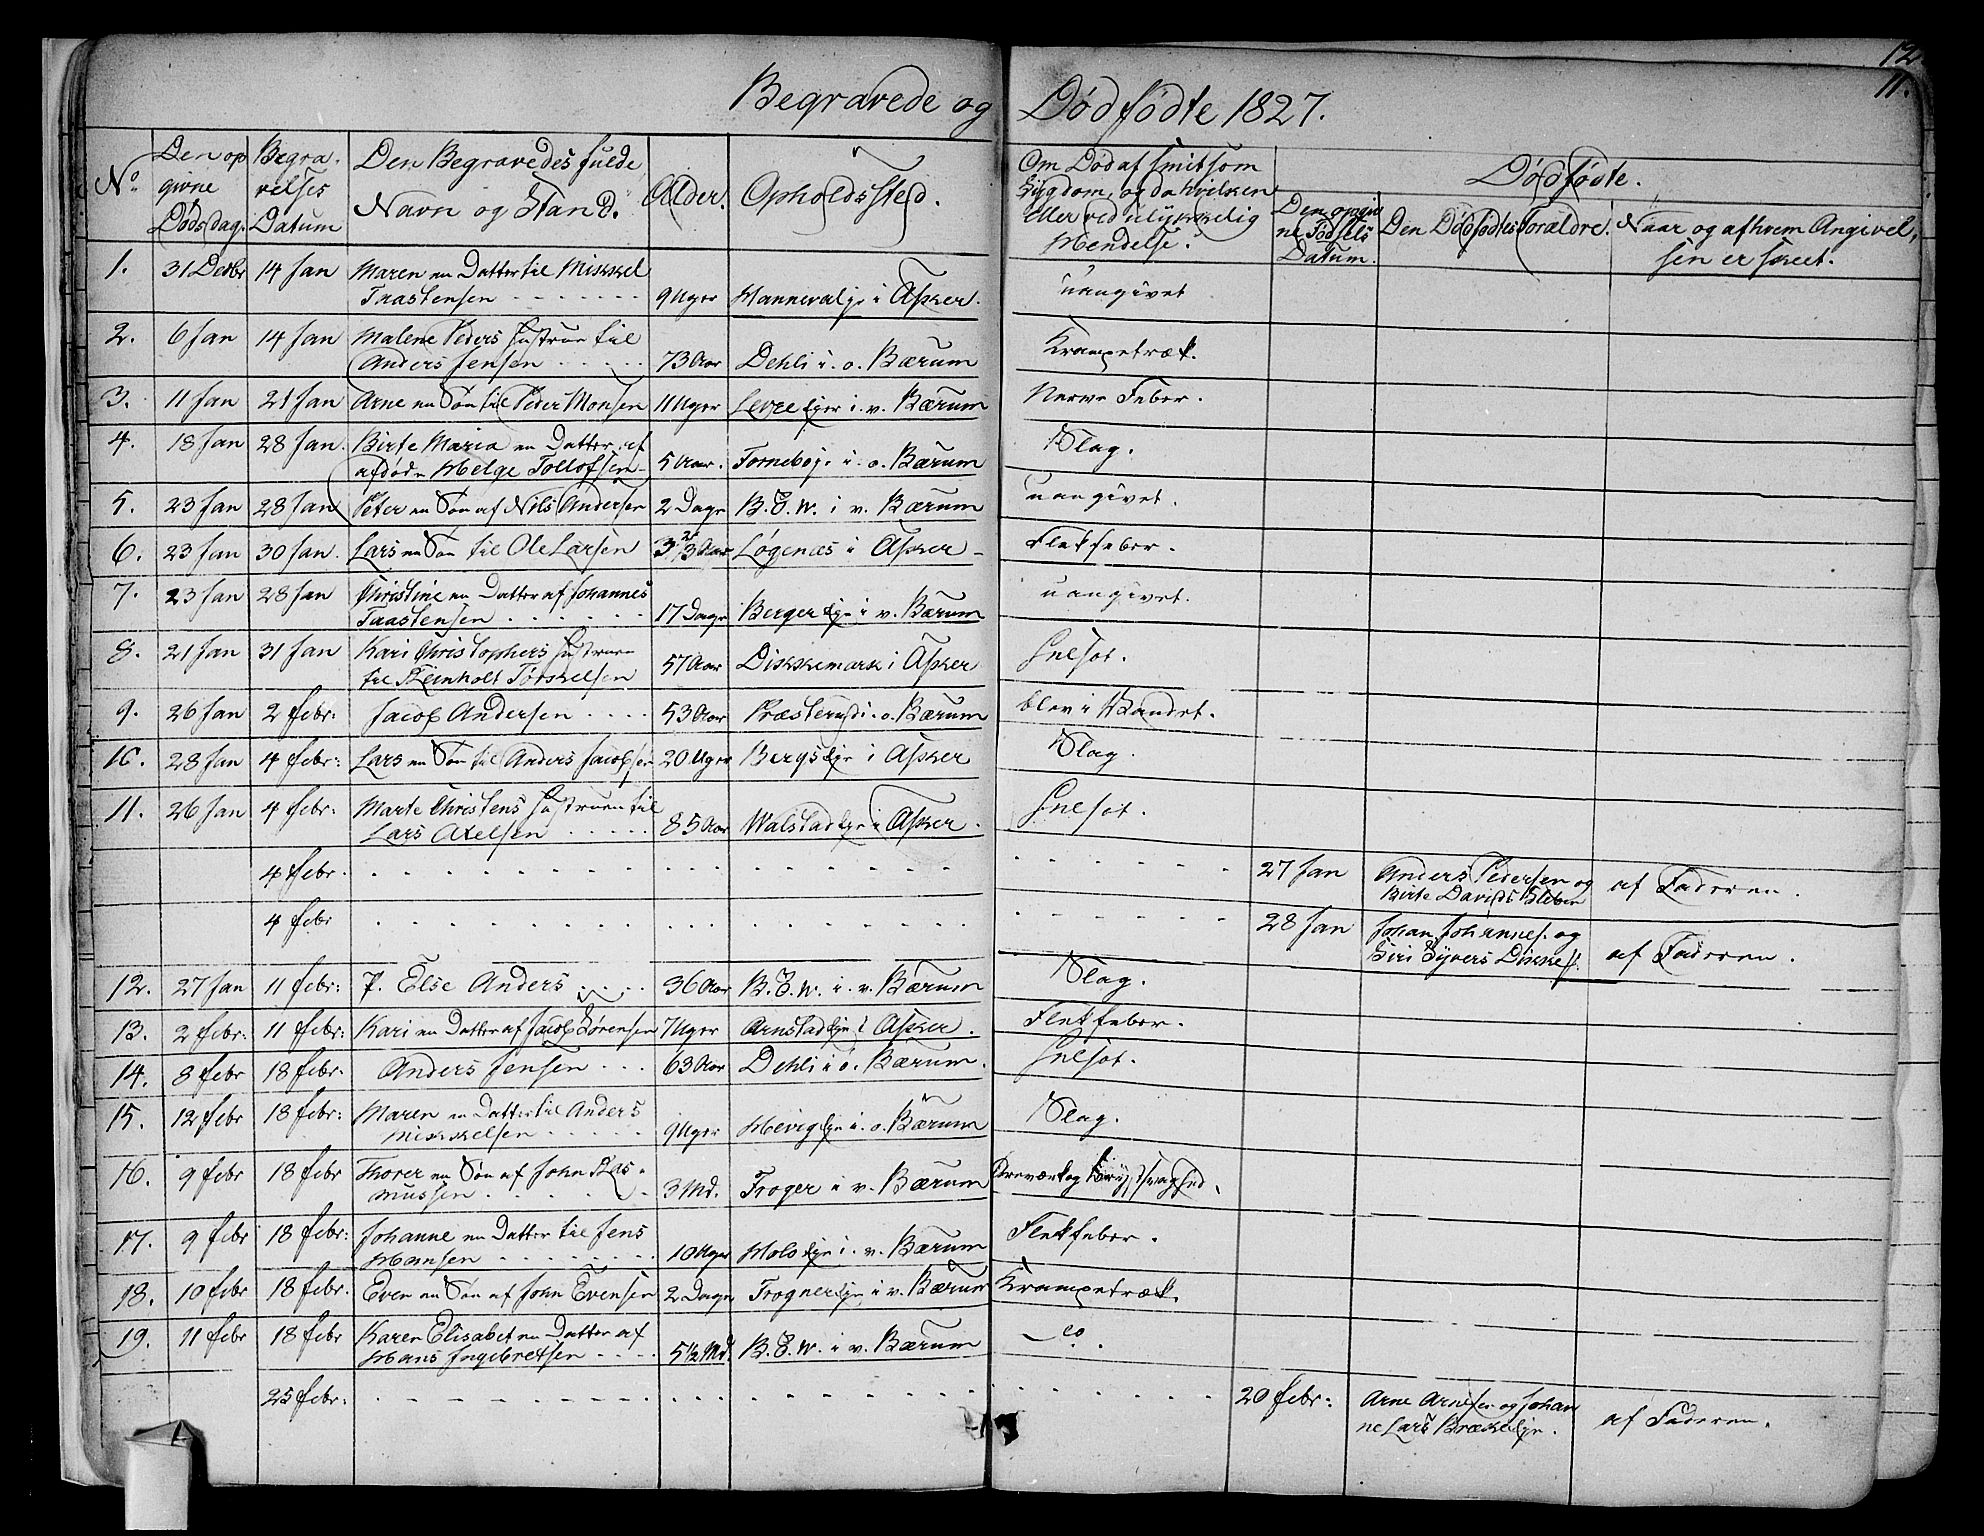 12
11.
Begravede og Dødfødte 1827.
No. Den op givne Dødsdag. Begra- velses Datum Den Begravedes fulde Navn og Stand. Alder. Opholdssted. Om Död af smitsom Sygdom, og da hvilken Eller ved ulykkelig Hendelse. Dødfødte. Den opgiv ne Fødsels Datum. Den Dödfödtes Forældre. Naar og af hvem Angivel- sen er skeet.
1. 31 Decbr 14 Jan Maren en Datter til Mikkel
Taastensen 9 Uger i Asker. uangivet
2. 6 Jan 14 Jan Malene Peders Hustrue til
Anders Jensen 73 Aar Dehli i. o. Bærum Krampetræk.
3. 11 Jan 21 Jan Arne en Søn til Peder Monsen 11 Uger i. v. Bærum Nerve Feber.
4. 18 Jan 28 Jan. Birte Maria en Datter af
afdøde Helge Tollofsen 5 Aar. Fornebøje i. o. Bærum Slag.
5. 23 Jan 28 Jan Peter en Søn af Nils Andersen 2 Dage B. E. W. i v. Bærum uangivet.
6. 23 Jan 30 Jan. Lars en Søn til Ole Larsen 3 2/3 Aar Løgenæs i Asker Flekfeber.
7. 23 Jan 28 Jan Christine en Datter af Johannes
Taastensen 17 Dage Berger eje i v. Bærum uangivet.
8. 21 Jan 31 Jan Kari Christophers Hustrue
til Reinholt Torskelsen 57 Aar Dikkemark i Asker Gulsot.
9. 26 Jan 2 febr: Jacob Andersen 53 Aar Præsterud i. o. Bærum blev i Vandet.
10. 28 Jan 4 febr: Lars en Søn til Anders Jacobsen 20 Uger Bergs eje i Asker Slag.
11. 26 Jan 4 febr: Marte Christens Hustruen til
Lars Axelsen 85 Aar Walstad eje i Asker. Gulsot.
4 febr. 27 Jan Anders Pedersen og
Birte Davids af Faderen.
4 febr 28 Jan Johan Johannes. og
Siri Syvers Dikke af Faderen.
12. 27 Jan 11 febr: P. Else Anders 36 Aar B. E. W. i. v. Bærum Slag.
13. 2 febr: 11 febr: Kari en Datter af Jacob Sörensen 7 Uger Arnstad eje i Asker. Flekfeber.
14. 8 febr 18 febr. Anders Jensen 63 Aar Dehli i o. Bærum. Gulsot.
15. 12 febr 18 febr: Maren en Datter til Anders
Mikkelsen 9 Uger Hevig eje i. o. Bærum Slag.
16. 9 febr 18 febr Thorer en Søn af John Ras-
mussen 3 Md. Froger i v. Bærum
17. 9 febr 18 febr: Johanne en Datter til Jens
Hansen 10 Uger Holo eje i. v. Bærum Flekfeber.
18. 10 febr 18 febr. Even en Søn af John Evensen 2 Dage Frogner eje i v. Bærum Krampetræk.
19. 11 febr 18 febr Karen Elisabet en Datter af
Hans Ingebretsen 5½ Md. B. E. W. i v. Bærum
25 febr: 20 febr: Arne Arnesen og Johan
ne Lars Bræke eje. af Faderen.